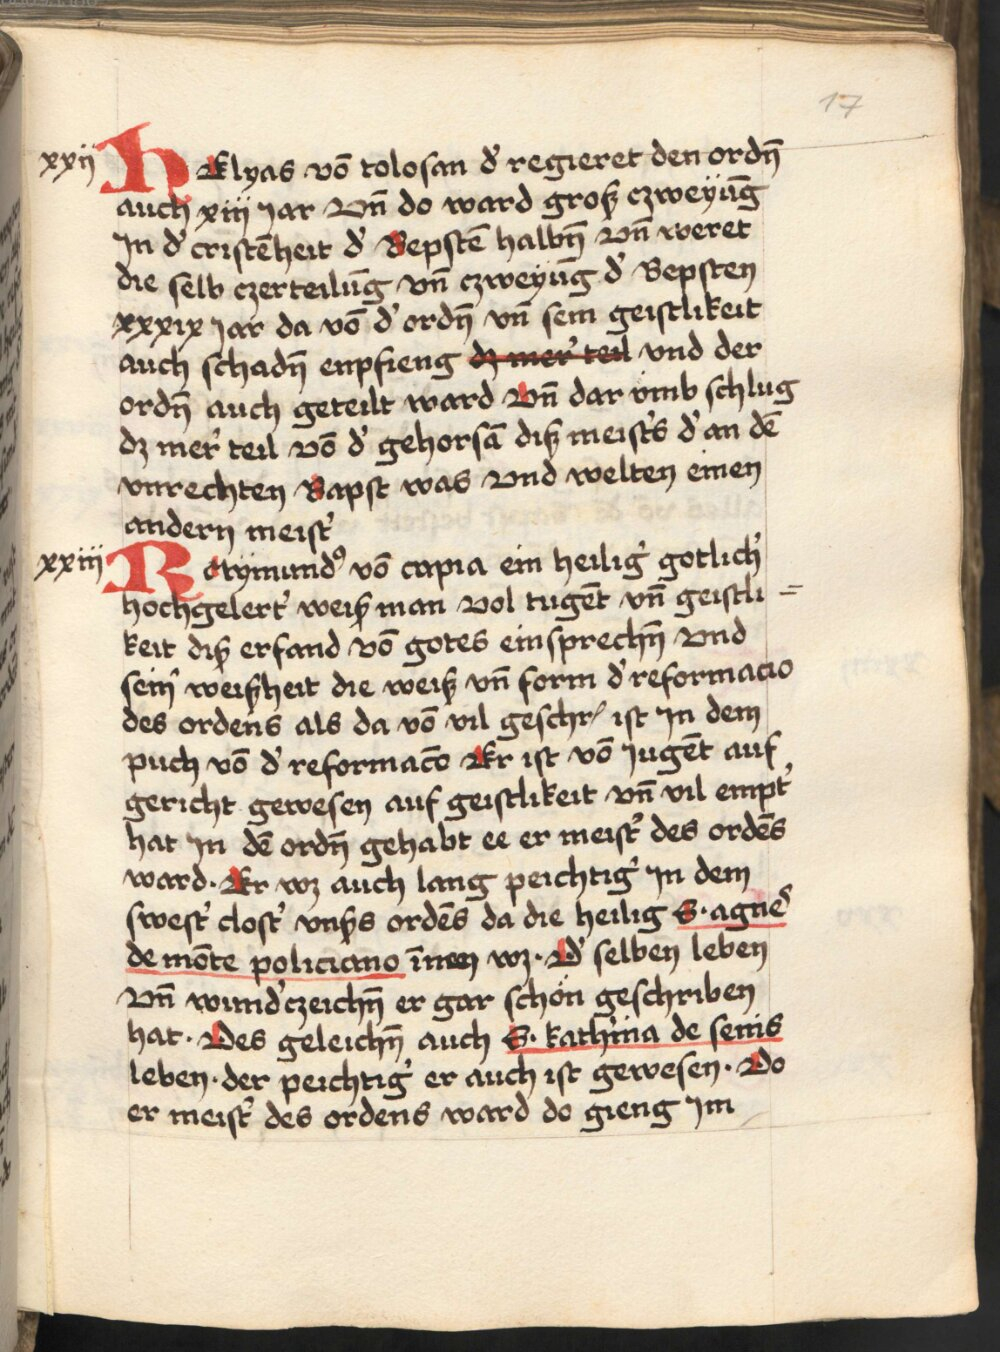 17
xxij H Elyas vō tolosan d̕ regieret den ordn̄
auch xiij Jar Vn̄ do ward groß czweyūg
Jn d̕ cristēheit d̕ Bepstē halbn̄ vn̄ weret
die selb czerteilūg vn̄ czweyūg d̕ Bepsten
xxxix Jar da vō d̕ ordn̄ vn̄ sein geistlikeit
auch schadn̄ enpfieng dz mer̕ teil vnd der
ordn̄ auch geteilt ward Vn̄ dar vmb schlug
dz mer̕ teil vō d̕ gehorsā diß meist̕s d̕ an dē
vnrechten Bapst was vnd welten einen
andern meist̕
xxiij R aymundꝰ vō capua ein heilig̕ gotlich̕
hochgelert̕ weiß man vol tugēt vn̄ geistli =
keit diß erfand vō gotes einsprechn̄ vnd
sein̕ weißheit die weiß vn̄ form d̕ reformacio
des ordens als da vō vil geschr̕ ist Jn dem
puch vō d̕ reformacō Er ist vō Jugēt auf
gericht gewesen auf geistlikeit vn̄ vil empt̕
hat Jn dē ordn̄ gehabt ee er meist̕ des ordēs
ward. Er wz auch lang peichtig̕ Jn dem
swest̕ clost̕ vnßs ordēs da die heilig S. agnes
de mōte policiano īnen wz. D̕ selben leben
Vn̄ wund̕czeichn̄ er gar schön geschriben
hat. Des geleichn̄ auch S. kath̕ina de senis
leben. der peichtig̕ er auch ist gewesen. Do
er meist̕ des ordens ward do gieng Jm